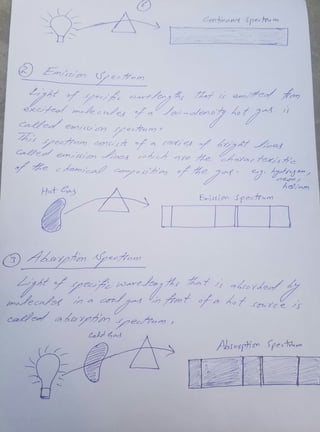 Continuous Spectrum
② Emission Spectrum
Light of specific wavelengths that is emitted from
excited molecules of a low-density hot gas is
called emission spectrum.
This spectrum consists of a series of bright lines
called emission lines which are the characteristic
of the chemical composition of the gas. e.g. hydrogen,
neon,
helium
Hot Gas
Emission Spectrum
③ Absorption Spectrum
Light of specific wavelengths that is absorbed by
molecules in a cool gas in front of a hot source is
called absorption spectrum.
Cold Gas
Absorption Spectrum